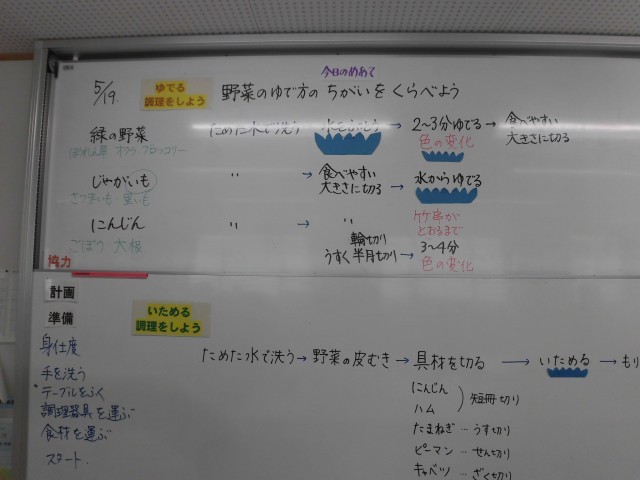 今日のめあて
5/19.
ゆでる
調理をしよう
野菜のゆで方の ちがいを くらべよう
緑の野菜 ためた水で洗う 2~3分ゆでる → 食べやすい
大きさに切る
色の変化
ほうれん草 オクラ ブロッコリー
じゃがいも 〃 → 食べやすい
大きさに切る → 水からゆでる
さつまいも 里いも
にんじん 〃 → 〃
竹串が
とおるまで
ごぼう 大根
輪切り
うすく 半月切り → 3~4分
色の変化
協力
計画
準備
いためる
調理をしよう
身仕度
手を洗う
テーブルをふく
調理器具を運ぶ
食材を運ぶ
スタート.
ためた水で洗う → 野菜の皮むき → 具材を切る → いためる → もり
にんじん
ハム
短冊切り
たまねぎ … うす切り
ピーマン … せん切り
キャベツ … ざく切り